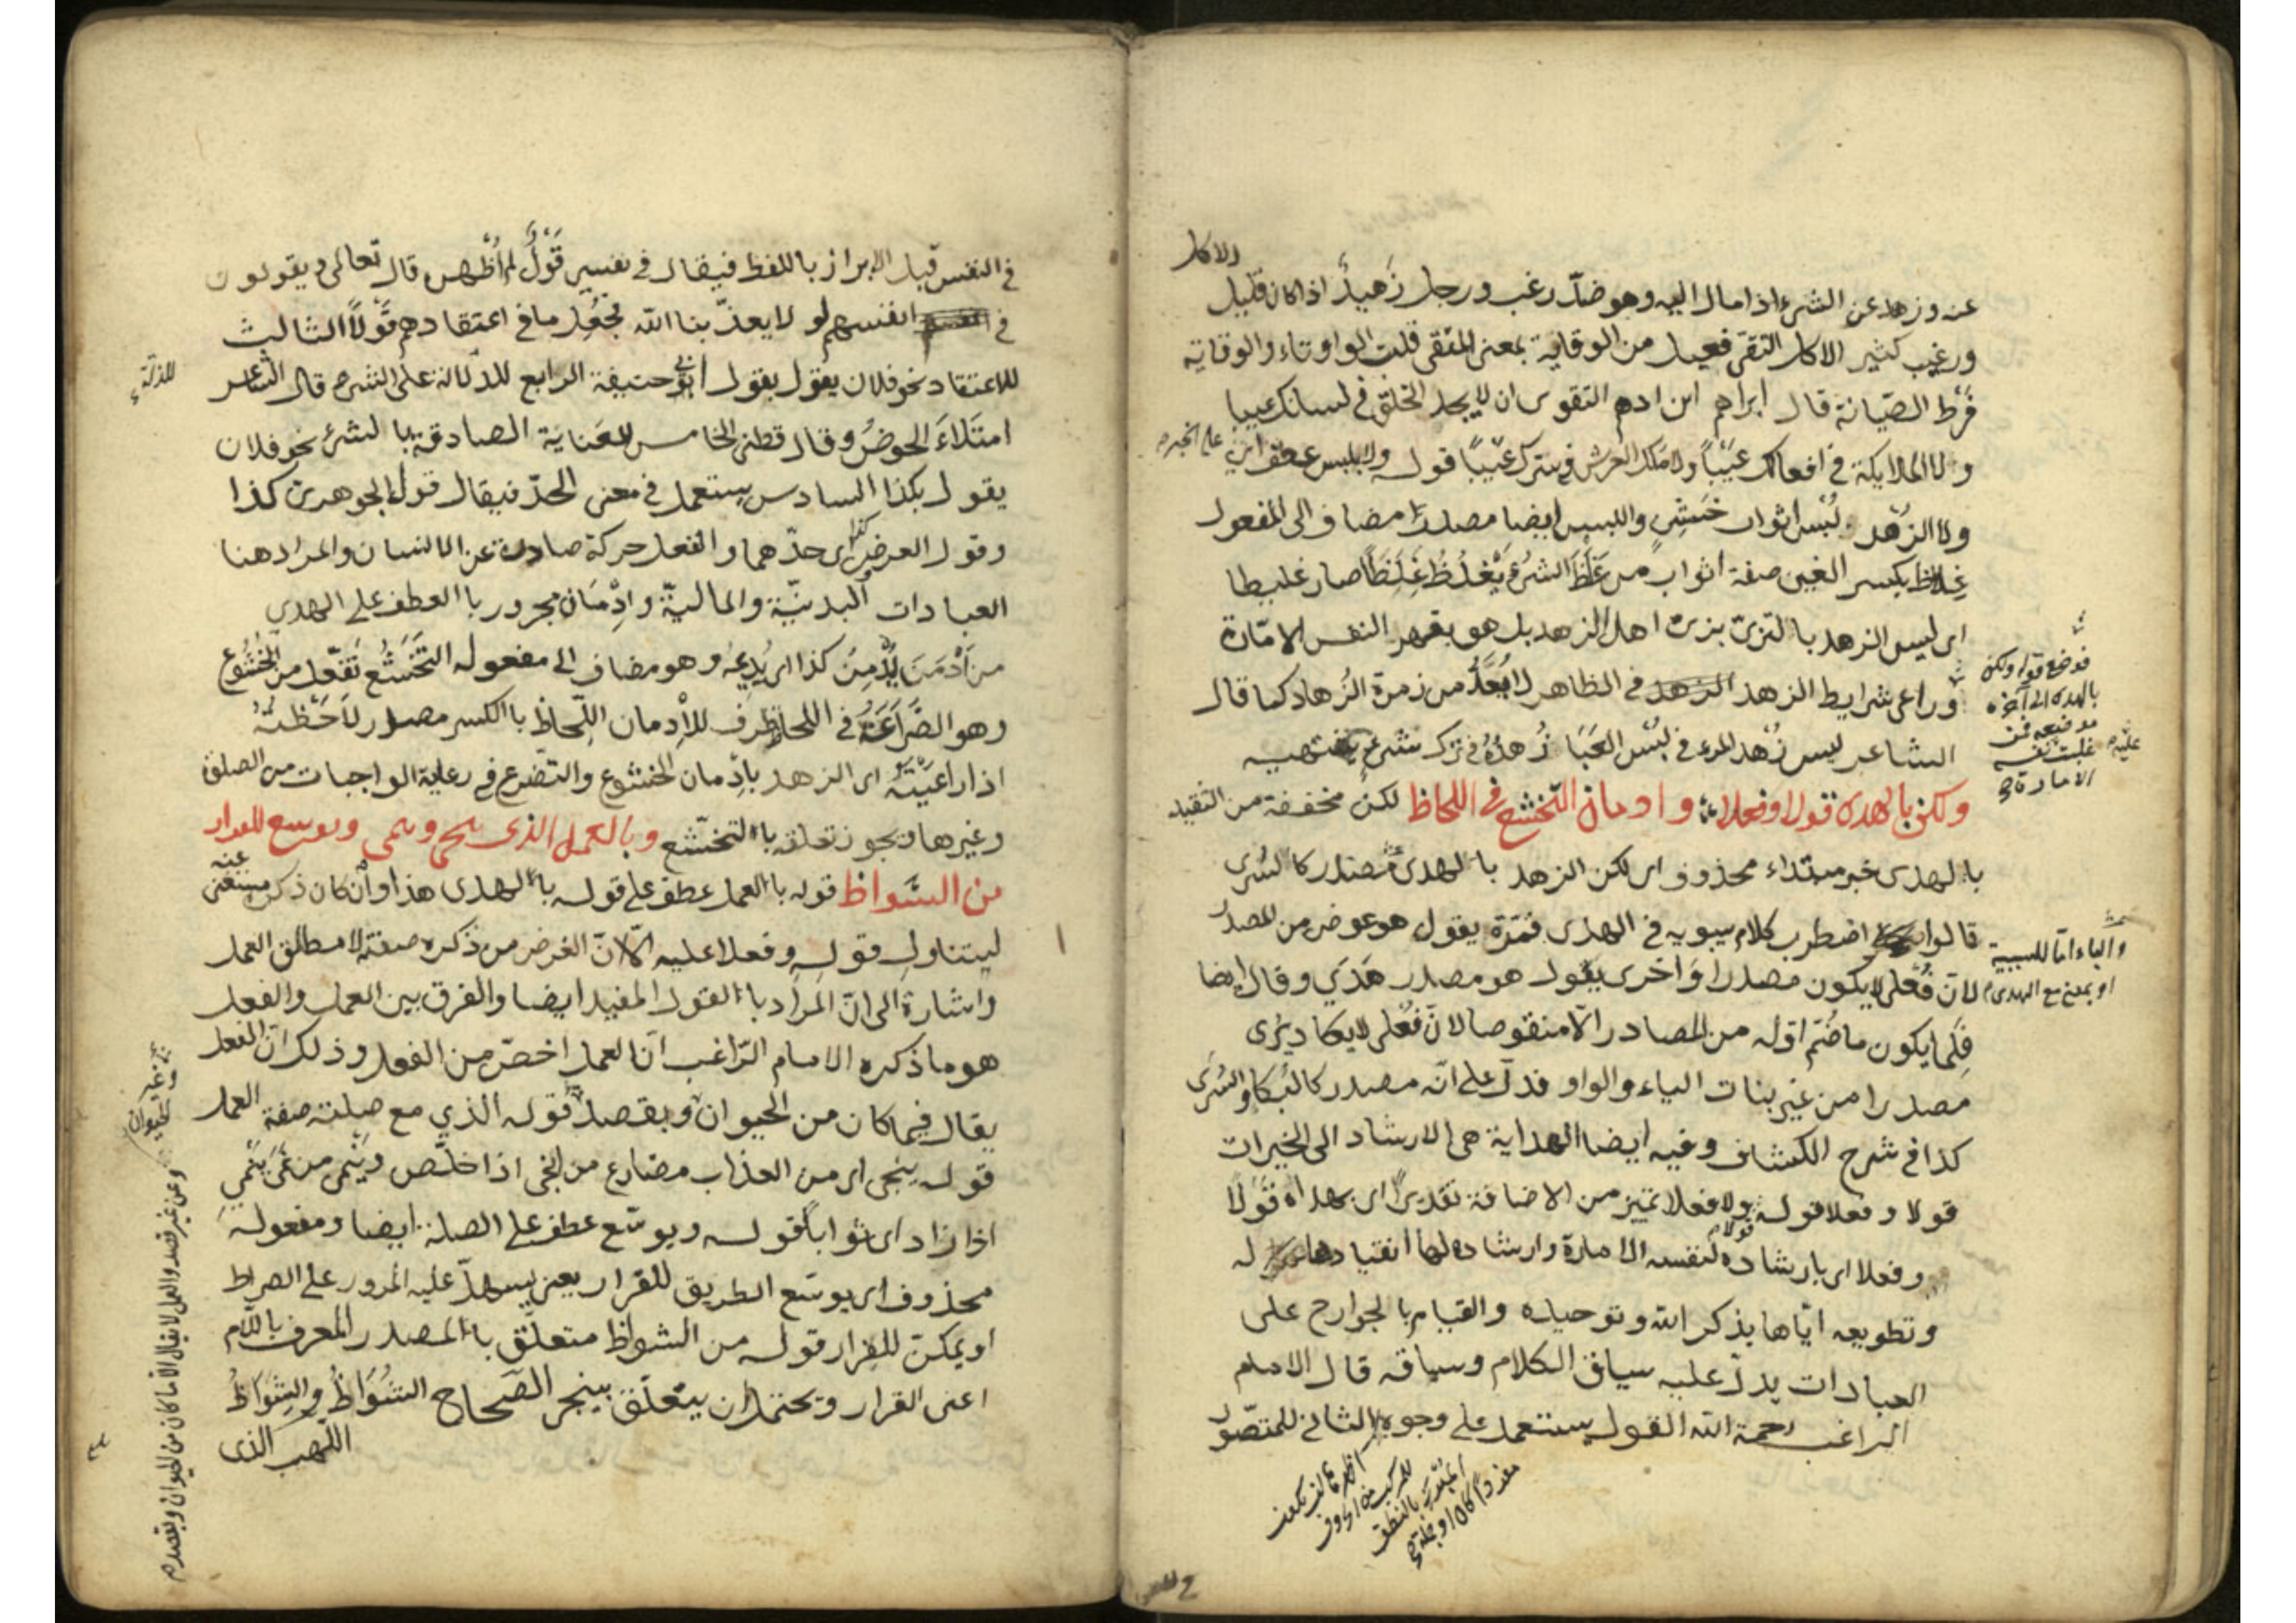 الاكل
عنه وزهد عن الشئ اذا مال اليه وهو ضدّ رغب ورجل زهيدٌ اذا كان قليل
ورغيب كثير الاكل التقى فعيل من الوقاية بمعنى المتقى قلبت الواو تاء والوقاية
فَرْط الصّيانة قال ابراهيم ابن ادهم التقوى ان لا يجد الخلق في لسانك عيبا
ولا الملايكة في افعالك عَيْباً ولا ملك العرش في سترك عَيْباً قوله ولا بلبس عطف
ولا الزهد لُبْس اثواب خَشِنٍ واللبس ايضا مصدر مضاف الى المفعول
غِلاظ بكسر الغين صفة اثواب من غَلَظَ الشئ يَغْلُظُ غِلَظاً صار غليظا
اى ليس الزهد بالتزىّ بزىّ اهل الزهد بل هو بقهر النفس الامّارة
وراعى شرايط الزهد في الظاهر لا يُعَدُّ من زمرة الزُهاد كما قال
الشاعر ليس زُهْد المرء في لُبْس العَبَا زُهدُهُ في ترك شئ يشتهيه
ولكن بالهدى قولا وفعلا وادمان التخشع في اللحاظ لكن مخففة من الثقيلة
بالهدى خبر مبتداء محذوف اى لكن الزهد بالهدى مصدر كالسُرى
قالوا اضطرب كلام سيبويه في الهدى فمَرّة يقول هو عوض من المصدر
لانّ فُعَلى لا يكون مصدرا وَاخرى يقول هو مصدر هَدَي وقال ايضا
قلّما يكون ما ضُمّ اوّله من المصادر الّا منقوصا لانّ فُعَلى لا يكاد يُرى
مصدرا من غير بنات الياء والواو فدلّ على انّه مصدر كالبُكا والسُرَى
كذا في شرح الكشاف وفيه ايضا الهداية هى الارشاد الى الخيرات
قولا وفعلا قوله قولا وفعلا تميز من الاضافة تقديرًا اى بهداه قولا
وفعلا اى بارشاده قولا لنفسه الامارة وارشاده لها انقيادها له
وتطويعه ايّاها بذكر الله وتوحيده والقيام بالجوارح على
العبادات يدلّ عليه سياق الكلام وسباقه قال الامام
الراغب رحمة الله القول يستعمل على وجوه الثانى للمتصّور
على الخبر
فوضع قوله ولكن
بالهدى الى آخره
موضعه فمن
غلبت نفسه
عليه
الامارة
والباء امّا للسببية
او بمعنى مع الهدى
المبرز بالنطق
مفردا كان او جملة
في النفس قبل الابراز باللفظ فيقال في نفسى قَوْلٌ لم اُظْهِره قال تعالى ويقولون
في انفسهم لو لا يعذّبنا الله فجُعِل ما في اعتقادهم قَوْلاً الثالث
للاعتقاد نحو فلان يقول بقول ابى حنيفة الرابع للدلالة على الشئ قال الشاعر
امتَلَاءَ الحوضُ وقال قطنى الخامس للعناية الصادقة بالشئ نحو فلان
يقول بكذا السادس يستعمل في معنى الحدّ فيقال قول الجوهر كذا
وقول العرض كذا اى حدّهما والفعل حركة صادرة عن الانسان والمراد هنا
العبادات البدنيّة والماليّة وادْمَان مجرور بالعطف على الهدى
من اَدْمَنَ يُدْمِنُ كذا اى يُديمُه وهو مضاف الى مفعوله التَخَشُّع تَفَعُّل من الخُشُوع
وهو الضَّرَاعَةُ في اللحاظ ظرف للاِدمان اللِّحاظ بالكسر مصدر لاَحَظْتُهُ
اذا راعَيْتُهُ اى الزهد بادْمان الخشوع والتضرع في رعاية الواجبات من الصلوة
وغيرها ويجوز تعلقه بالتخشّع وبالعمل الذى ينجى وينمى ويوسع للفرار
من الشواظ قوله بالعمل عطف على قوله بالهدى هذا وان كان ذكره مستغنى عنه
ليتناول قوله وفعلا عليه الّا انّ الغرض من ذكره صفته لا مطلق العمل
واشارة الى انّ المراد بالقول المفيد ايضا والفرق بين العمل والفعل
هو ما ذكره الامام الرّاغب انّ العمل اخصّ من الفعل وذلك انّ الفعل
يقال فيما كان من الحيوان وبقصد قوله الذي مع صِلته صفة العمل
قوله ينجى اى من العذاب مضارع من انجى اذا خلّص ويَنْمى من نَمَى يَنْمِي
اذا زاد اى ثواباً قوله ويوسّع عطف على الصلة ايضا ومفعوله
محذوف اى يوسّع الطريق للفرار يعنى يسهلّ عليه المرور على الصراط
او يمكن للفرار قوله من الشواظ متعلّق بالمصدر المعرف باللّام
اعنى الفرار ويحتمل ان يتعلّق بينجى الصّحاح الشُوَاظُ والشِوَاظُ
اللهب الذى
للدلالة
غير الحيوان
وعن غير قصد والعمل لا يقال الّا ما كان من الحيوان وبقصد